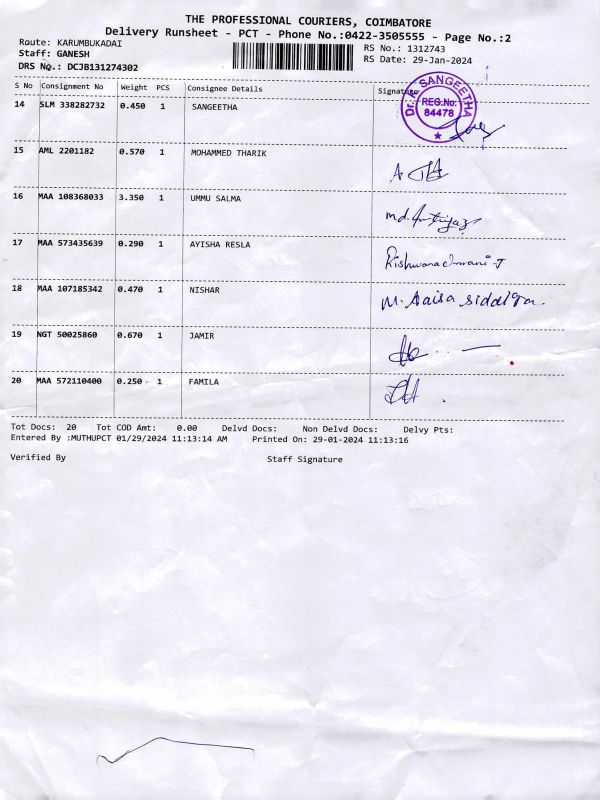 THE PROFESSIONAL COURIERS, COIMBATORE
Delivery Runsheet - PCT - Phone No.:0422-3505555 - Page No.:2
Route: KARUMBUKADAI
RS No.: 1312743
Staff: GANESH
RS Date: 29-Jan-2024
DRS No.: DCJB131274302
S No Consignment No Weight PCS Consignee Details Signature
Dr. SANGEETHA
REG.No:
84478
14 SLM 338282732 0.450 1 SANGEETHA
15 AML 2201182 0.570 1 MOHAMMED THARIK
16 MAA 108368033 3.350 1 UMMU SALMA
md.
17 MAA 573435639 0.290 1 AYISHA RESLA
18 MAA 107185342 0.470 1 NISHAR
M. Aaisa siddiqa.
19 NGT 50025860 0.670 1 JAMIR
20 MAA 572110400 0.250 1 FAMILA
Tot Docs: 20 Tot COD Amt: 0.00 Delvd Docs: Non Delvd Docs: Delvy Pts:
Entered By :MUTHUPCT 01/29/2024 11:13:14 AM Printed On: 29-01-2024 11:13:16
Verified By Staff Signature